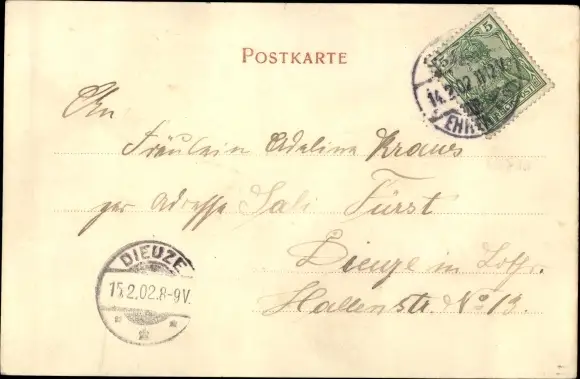 POSTKARTE
5
14.2.02
An
Fräulein Adelina Kraus
per Adresse Sali Fürst
Dieuze in Lothr.
Hallenstr. No 19.
DIEUZE
15.2.02.8-9V.